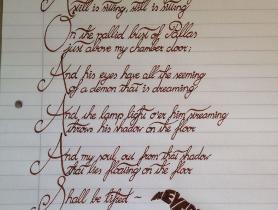 still is sitting, still is sitting
On the pallid bust of Pallas
just above my chamber door;
And his eyes have all the seeming
of a demon that is dreaming.
And the lamp light o'er him streaming
throws his shadow on the floor
And my soul, out from that shadow
that lies floating on the floor
Shall be lifted ~